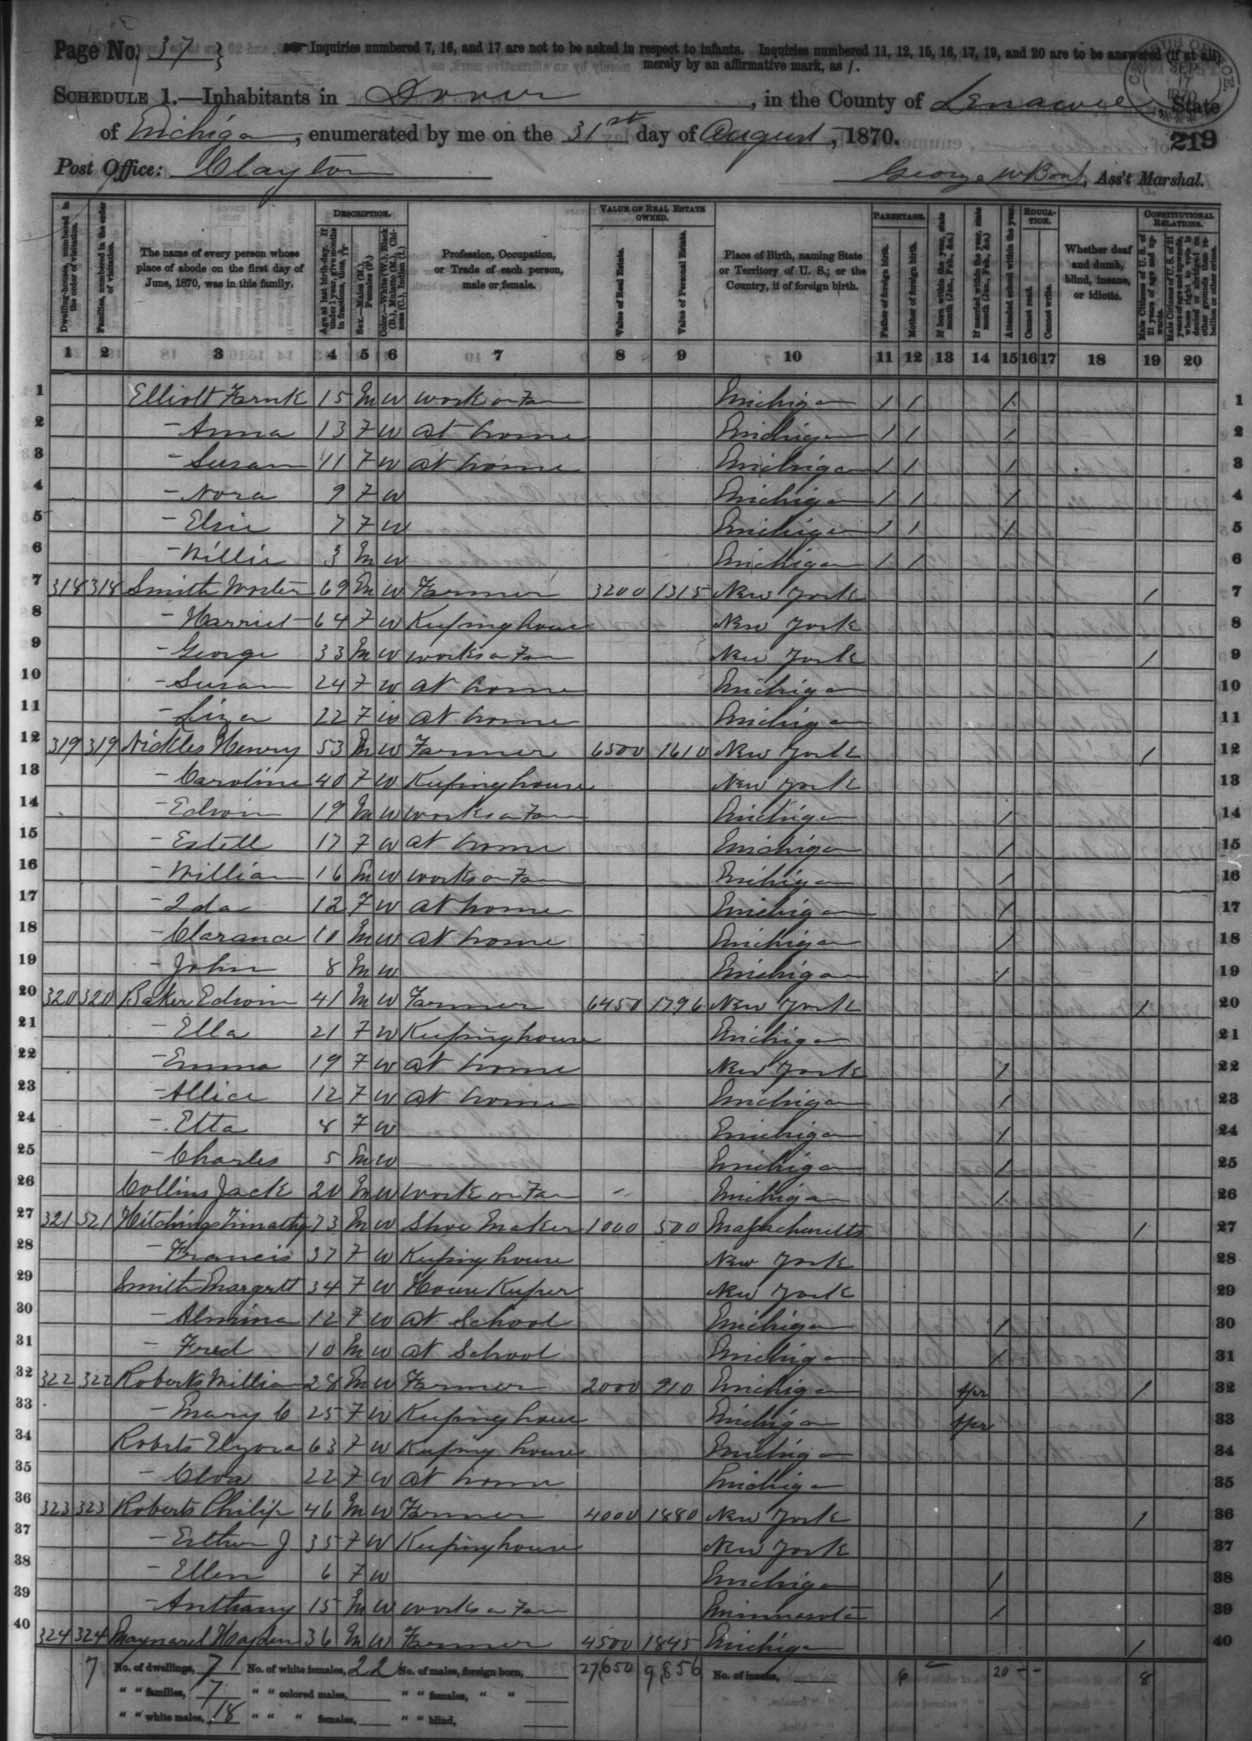 Page No. 37
Inquiries numbered 7, 16, and 17 are not to be asked in respect to infants. Inquiries numbered 11, 12, 15, 16, 17, 19, and 20 are to be answered (if at all)
merely by an affirmative mark, as /.
SCHEDULE 1.—Inhabitants in Dover, in the County of Lenawee, State
of Michigan, enumerated by me on the 31st day of August, 1870.
219
Post Office: Clayton
George W, Ass't Marshal.
DESCRIPTION. VALUE OF REAL ESTATE OWNED. PARENTAGE. EDUCATION. CONSTITUTIONAL RELATIONS.
Dwelling-houses, numbered in the order of visitation.
Families, numbered in the order of visitation.
The name of every person whose place of abode on the first day of June, 1870, was in this family.
Age at last birth-day. If under 1 year, give months in fractions, thus,
Sex.—Males (M.), Females (F.)
Color.—White (W.), Black (B.), Mulatto (M.), Chinese (C.), Indian (I.)
Profession, Occupation, or Trade of each person, male or female.
Value of Real Estate.
Value of Personal Estate.
Place of Birth, naming State or Territory of U. S.; or the Country, if of foreign birth.
Father of foreign birth.
Mother of foreign birth.
If born within the year, state month (Jan., Feb., &c.)
If married within the year, state month (Jan., Feb., &c.)
Attended school within the year.
Cannot read.
Cannot write.
Whether deaf and dumb, blind, insane, or idiotic.
Male Citizens of U. S. of 21 years of age and upwards.
1 2 3 4 5 6 7 8 9 10 11 12 13 14 15 16 17 18 19 20
1 Elliott Frank 15 M W work on Fa Michigan / / / 1
2 – Anna 13 F W at home Michigan / / / 2
3 – Susan 11 F W at home Michigan / / / 3
4 – Nora 9 F W Michigan / / / 4
5 – Elsie 7 F W Michigan / / / 5
6 – Willie 3 M W Michigan / / 6
7 318 318 Smith 69 M W Farmer 3200 1315 New York / 7
8 – Harriet 64 F W Keeping house New York 8
9 – George 33 M W works on Fa New York / 9
10 – Susan 24 F W at home Michigan 10
11 – Liza 22 F W at home Michigan 11
12 319 319 Nickles Henry 53 M W Farmer 6500 1610 New York / 12
13 – Caroline 40 F W Keeping house New York 13
14 – Edwin 19 M W works on Fa Michigan / 14
15 – Estell 17 F W at home Michigan / 15
16 – William 16 M W works on Fa Michigan / 16
17 – Ida 12 F W at home Michigan / 17
18 – Clarance 10 M W at home Michigan / 18
19 – John 8 M W Michigan / 19
20 320 320 Baker Edwin 41 M W Farmer 6450 1796 New York / 20
21 – Ella 21 F W Keeping house Michigan 21
22 – Emma 19 F W at home New York / 22
23 – Allice 12 F W at home Michigan / 23
24 – Etta 8 F W Michigan / 24
25 – Charles 5 M W Michigan / 25
26 Collins Jack 20 M W work on Fa Michigan / 26
27 321 321 Hitchins Timothy 73 M W Shoe Maker 1000 500 Massachusetts / 27
28 – Francis 37 F W Keeping house New York 28
29 Smith Margrett 34 F W House Keeper New York 29
30 – Almina 12 F W at School Michigan / 30
31 – Fred 10 M W at School Michigan / 31
32 322 322 Roberts William 28 M W Farmer 2000 910 Michigan Apr / 32
33 – Mary C 25 F W Keeping house Michigan Apr 33
34 Roberts 63 F W Keeping house Michigan 34
35 – 22 F W at home Michigan 35
36 323 323 Roberts Philip 46 M W Farmer 4000 1880 New York / 36
37 – Esther J 35 F W Keeping house New York 37
38 – Ellen 6 F W Michigan / 38
39 – Anthany 15 M W works on Fa Minnesota / 39
40 324 324 Maynard Hayden 36 M W Farmer 4500 1845 Michigan / 40
7 No. of dwellings, 7 No. of white females, 22 No. of males, foreign born, 27,650 9,856 No. of insane, 6 20 8
" " families, 7 " " colored males, " " females, " "
" " white males, 18 " " " females, " " blind,